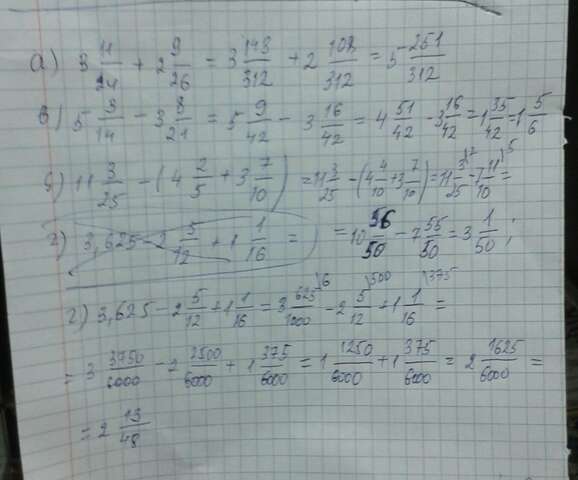 а) 3 11/24 + 2 9/26 = 3 143/312 + 2 108/312 = 5 251/312
в) 5 3/14 - 3 8/21 = 5 9/42 - 3 16/42 = 4 51/42 - 3 16/42 = 1 35/42 = 1 5/6
б) 11 3/25 - (4 2/5 + 3 7/10) = 11 3/25 - (4 4/10 + 3 7/10) = 11 3/25 - 7 11/10 =
= 10 56/50 - 7 55/50 = 3 1/50;
г) 3,625 - 2 5/12 + 1 1/16 =
г) 3,625 - 2 5/12 + 1 1/16 = 3 625/1000 - 2 5/12 + 1 1/16 =
= 3 3750/6000 - 2 2500/6000 + 1 375/6000 = 1 1250/6000 + 1 375/6000 = 2 1625/6000 =
= 2 13/48